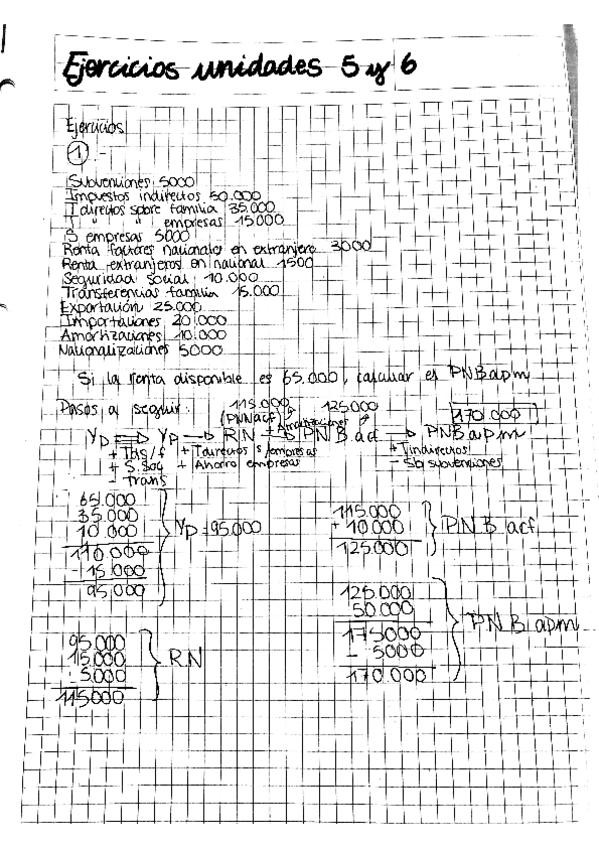 Ejercicios unidades 5 y 6
Ejercicios
1
Subvenciones: 5000
Impuestos indirectos 50.000
I directos sobre familia 35.000
I " " empresas 15000
S empresas 5000
Renta factores nacionales en extranjero 3000
Renta extranjeros en nacional 1500
Seguridad social 10.000
Transferencias familia 15.000
Exportación 25.000
Importaciones 20.000
Amortizaciones 10.000
Nacionalizaciones 5000
Si la renta disponible es 65.000, calcular el PNBapm
Pasos a seguir:
115.000 125.000 170.000
(PNNacf) + Amortizaciones
YD → YP → RN → PNBacf → PNBapm
+ Tds/f + T directos s/empresas + T indirectos
+ S.Soc + Ahorro empresas - Sb subvenciones
- trans
65.000
35.000
10.000
110.000
- 15.000
95.000
Yp = 95.000
115.000
+ 10.000
125.000
PNB acf
95.000
15.000
5.000
115000
RN
125.000
50.000
175000
- 5000
170.000
PNB apm